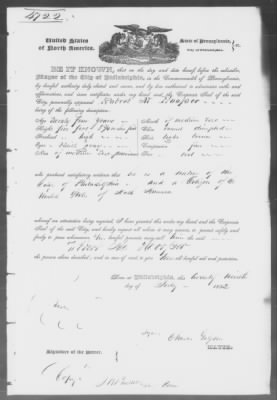 4722
United States
of North America.
State of Pennsylvania,
City of Philadelphia.
BE IT KNOWN, that on the day and date hereof before the subscriber,
Mayor of the City of Philadelphia, in the Commonwealth of Pennsylvania,
by lawful authority duly elected and sworn, and by law authorized to administer oaths and
affirmations, and issue certificates under my hand and the Corporate Seal of the said
City, personally appeared Robert M Hooper
of the following description:
Age twenty four years Mouth of medium size
Height five feet inches Chin dimpled
Forehead high Hair brown
Eyes gray Complexion fair
Nose of medium size Face
who produced satisfactory evidence that he is a native of the
City of Philadelphia and a Citizen of the
United States of North America
whereof an attestation being required, I have granted this under my hand and the Corporate
Seal of the said City, and hereby request all whom it may concern to permit safely and
freely to pass wheresoever lawful pursuits may call him the said
Robert M. Hooper
the person above described, and in case of need, to give him all lawful aid and protection.
Given at Philadelphia, this twenty ninth
day of July 1852
Charles Gilpin
MAYOR.
Signature of the Bearer.
(Copy)